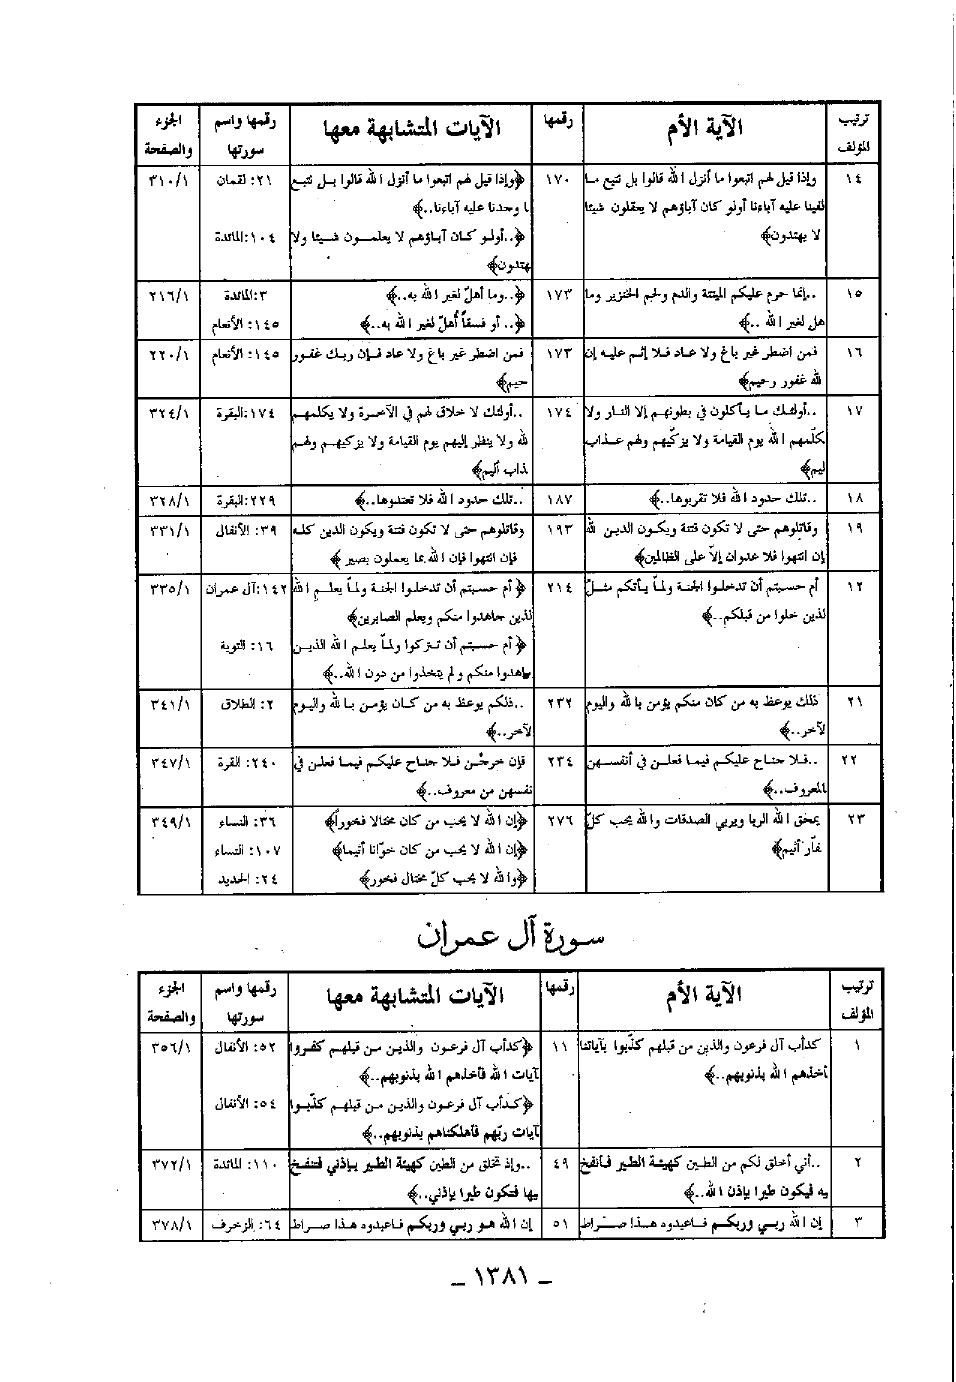 ترتيب المؤلف | الآية الأم | رقمها | الآيات المتشابهة معها | رقمها واسم سورتها | الجزء والصفحة
١٤ | وإذا قيل لهم اتبعوا ما أنزل الله قالوا بل نتبع ما | ١٧٠ | ﴿وإذا قيل لهم اتبعوا ما أنزل الله قالوا بل نتبع | ٢١: لقمان | ٣١٠/١
لفينا عليه آباءنا أولو كان آباؤهم لا يعقلون شيئا | ا وحدنا عليه آباءنا..﴾
لا يهتدون﴾ | ﴿..أولو كان آباؤهم لا يعلمون شيئا ولا | ١٠٤:المائدة
هتدون﴾
١٥ | ..إنما حرم عليكم الميتة والدم ولحم الخنزير وما | ١٧٣ | ﴿..وما أهلّ لغير الله به..﴾ | ٣:المائدة | ٢١٦/١
هل لغير الله ..﴾ | ﴿.. أو فسقاً أُهلّ لغير الله به..﴾ | ١٤٥: الأنعام
١٦ | فمن اضطر غير باغ ولا عاد فلا إثم عليه إن | ١٧٣ | فمن اضطر غير باغ ولا عاد فإن ربك غفور | ١٤٥: الأنعام | ٢٢٠/١
لله غفور رحيم﴾ | حيم﴾
١٧ | ..أولئك ما يأكلون في بطونهم إلا النار ولا | ١٧٤ | ..أولئك لا خلاق لهم في الآخرة ولا يكلمهم | ١٧٤:البقرة | ٣٢٤/١
كلّمهم الله يوم القيامة ولا يزكّيهم ولهم عذاب | لله ولا ينظر إليهم يوم القيامة ولا يزكيهم ولهم
ليم﴾ | ذاب أليم﴾
١٨ | ..تلك حدود الله فلا تقربوها..﴾ | ١٨٧ | ..تلك حدود الله فلا تعتدوها..﴾ | ٢٢٩:البقرة | ٣٢٨/١
١٩ | وقاتلوهم حتى لا تكون فتنة ويكون الدين لله | ١٩٣ | وقاتلوهم حتى لا تكون فتنة ويكون الدين كله | ٣٩: الأنفال | ٣٣١/١
إن انتهوا فلا عدوان إلاّ على الظالمين﴾ | فإن انتهوا فإن الله بما يعملون بصير ﴾
١٢ | أم حسبتم أن تدخلوا الجنة ولمّا يأتكم مثل | ٢١٤ | ﴿أم حسبتم أن تدخلوا الجنة ولمّا يعلم الله | ١٤٢:آل عمران | ٣٣٥/١
لذين خلوا من قبلكم..﴾ | لذين جاهدوا منكم ويعلم الصابرين﴾
﴿أم حسبتم أن تتركوا ولمّا يعلم الله الذين | ١٦: التوبة
باهدوا منكم ولم يتخذوا من دون الله..﴾
٢١ | ذلك يوعظ به من كان منكم يؤمن بالله واليوم | ٢٣٢ | ..ذلكم يوعظ به من كان يؤمن بالله واليوم | ٢: الطلاق | ٣٤١/١
لآخر..﴾ | لآخر..﴾
٢٢ | ..فلا جناح عليكم فيما فعلن في أنفسهن | ٢٣٤ | فإن خرجْن فلا جناح عليكم فيما فعلن في | ٢٤٠: القرة | ٣٤٧/١
المعروف..﴾ | نفسهن من معروف..﴾
٢٣ | يمحق الله الربا ويربي الصدقات والله يحب كلّ | ٢٧٦ | ﴿إن الله لا يحب من كان مختالا فخوراً﴾ | ٣٦: النساء | ٣٤٩/١
فّار أثيم﴾ | ﴿إن الله لا يحب من كان خوّانا أثيما﴾ | ١٠٧: النساء
﴿والله لا يحب كلّ مختال فخور﴾ | ٢٤: الحديد
سورة آل عمران
ترتيب المؤلف | الآية الأم | رقمها | الآيات المتشابهة معها | رقمها واسم سورتها | الجزء والصفحة
١ | كدأب آل فرعون والذين من قبلهم كذّبوا بآياتنا | ١١ | ﴿كدأب آل فرعون والذين من قبلهم كفروا | ٥٢: الأنفال | ٣٥٦/١
أخذهم الله بذنوبهم..﴾ | آيات الله فأخذهم الله بذنوبهم..﴾
﴿كدأب آل فرعون والذين من قبلهم كذّبوا | ٥٤: الأنفال
آيات ربّهم فأهلكناهم بذنوبهم..﴾
٢ | ..أني أخلق لكم من الطين كهيئة الطير فأنفخ | ٤٩ | ..وإذ تخلق من الطين كهيئة الطير بإذني فتنفخ | ١١٠: المائدة | ٣٧٢/١
يه فيكون طيرا بإذن الله..﴾ | يها فتكون طيرا بإذني..﴾
٣ | إن الله ربي وربكم فاعبدوه هذا صراط | ٥١ | إن الله هو ربي وربكم فاعبدوه هذا صراط | ٦٤: الزخرف | ٣٧٨/١
– ١٣٨١ –